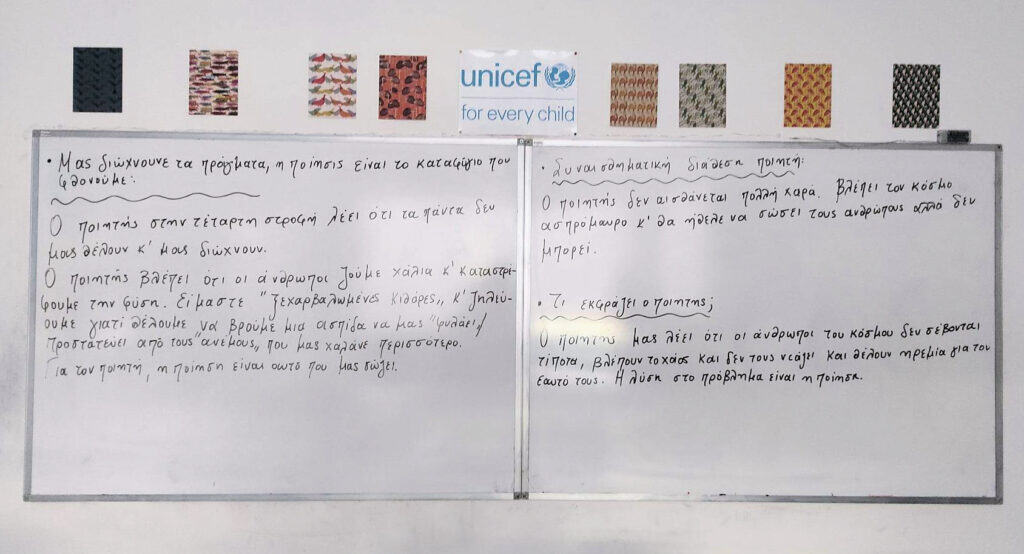 unicef
for every child
• Μας διώχνουνε τα πράγματα, η ποίησις είναι το καταφύγιο που
φθονούμε:
Ο ποιητής στην τέταρτη στροφή λέει ότι τα πάντα δεν
μας θέλουν κ' μας διώχνουν.
Ο ποιητής βλέπει ότι οι άνθρωποι ζούμε χάλια κ' καταστρέ-
φουμε την φύση. Είμαστε "ξεχαρβαλωμένες κιθάρες,, κ' ζηλεύ-
ουμε γιατί θέλουμε να βρούμε μια ασπίδα να μας "φυλάει,,/
προστατεύει από τους "ανέμους,, που μας χαλάνε περισσότερο.
Για τον ποιητή, η ποίηση είναι αυτό που μας σώζει.
• Συναισθηματική διάθεση ποιητή:
Ο ποιητής δεν αισθάνεται πολλή χαρά. Βλέπει τον κόσμο
ασπρόμαυρο κ' θα ήθελε να σώσει τους ανθρώπους αλλά δεν
μπορεί.
• Τι εκφράζει ο ποιητής;
Ο ποιητής μας λέει ότι οι άνθρωποι του κόσμου δεν σέβονται
τίποτα, βλέπουν το χάος και δεν τους νοιάζει και θέλουν ηρεμία για τον
εαυτό τους. Η λύση στο πρόβλημα είναι η ποίηση.